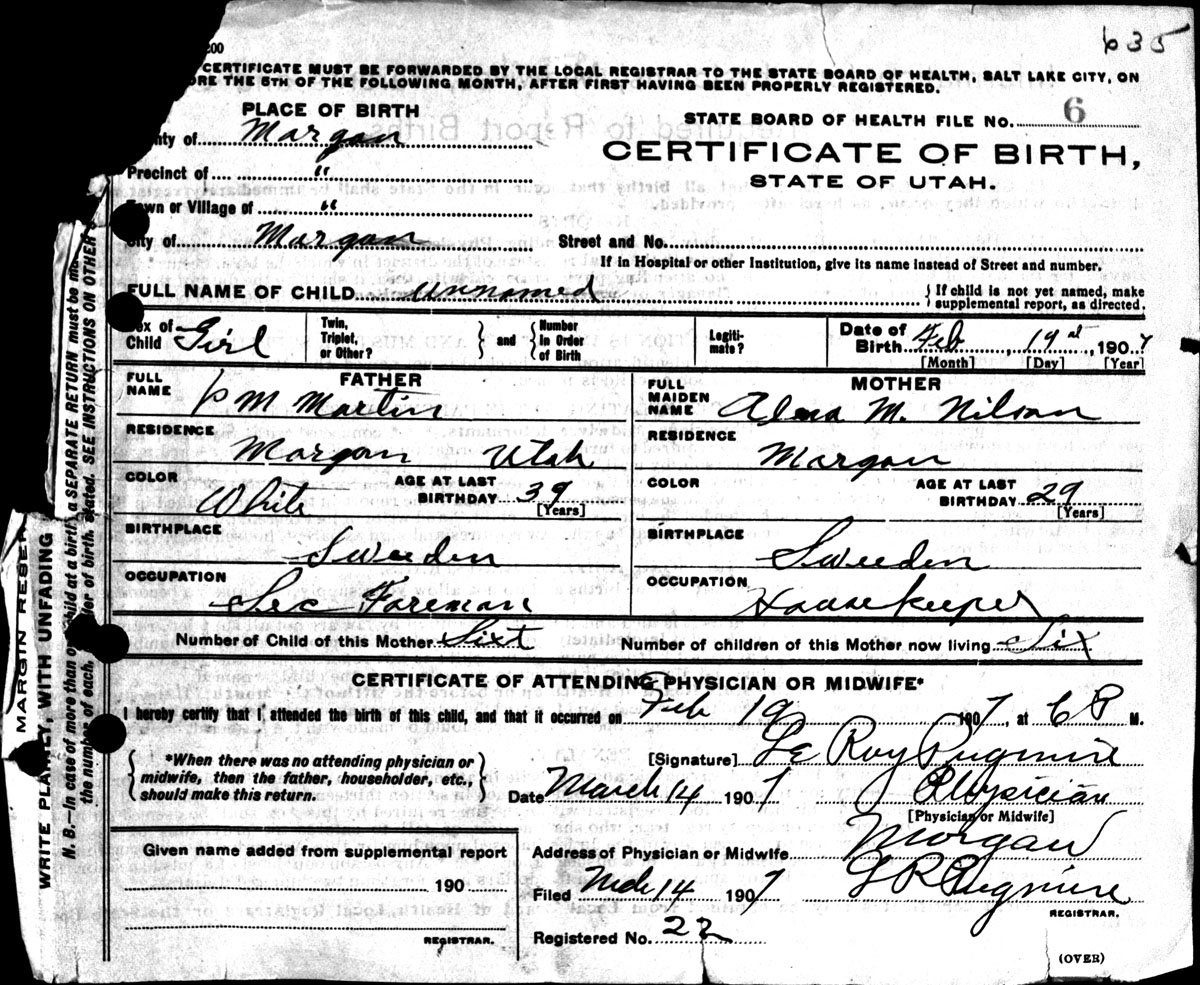 635
200
CERTIFICATE MUST BE FORWARDED BY THE LOCAL REGISTRAR TO THE STATE BOARD OF HEALTH, SALT LAKE CITY, ON
ORE THE 5TH OF THE FOLLOWING MONTH, AFTER FIRST HAVING BEEN PROPERLY REGISTERED.
PLACE OF BIRTH
nty of Morgan
Precinct of "
Town or Village of "
City of Morgan
STATE BOARD OF HEALTH FILE NO. 6
CERTIFICATE OF BIRTH,
STATE OF UTAH.
Street and No.
If in Hospital or other Institution, give its name instead of Street and number.
FULL NAME OF CHILD Unnamed
If child is not yet named, make supplemental report, as directed.
Sex of Child Girl
Twin, Triplet, or Other?
and
Number in Order of Birth
Legiti-mate?
Date of Birth Feb 19 1907
[Month] [Day] [Year]
FATHER
FULL NAME P M Martin
RESIDENCE Morgan Utah
COLOR White
AGE AT LAST BIRTHDAY 39 [Years]
BIRTHPLACE Sweeden
OCCUPATION Sec Foreman
MOTHER
FULL MAIDEN NAME Alma M. Nilson
RESIDENCE Morgan
COLOR
AGE AT LAST BIRTHDAY 29 [Years]
BIRTHPLACE Sweeden
OCCUPATION Housekeeper
Number of Child of this Mother Sixt
Number of children of this Mother now living Six
CERTIFICATE OF ATTENDING PHYSICIAN OR MIDWIFE*
I hereby certify that I attended the birth of this child, and that it occurred on Feb 19 1907, at 6 P M.
*When there was no attending physician or midwife, then the father, householder, etc., should make this return.
[Signature] Le Roy Pugmire
Date March 14 1907
Physician
[Physician or Midwife]
Given name added from supplemental report
190
REGISTRAR.
Address of Physician or Midwife Morgan
Filed Mch 14 1907
L R Pugmire
REGISTRAR.
Registered No. 22
(OVER)
MARGIN RESER
WRITE PLAINLY, WITH UNFADING
N. B.—In case of more than one child at a birth, a SEPARATE RETURN must be ma
the number of each, in order of birth, stated. SEE INSTRUCTIONS ON OTHER S